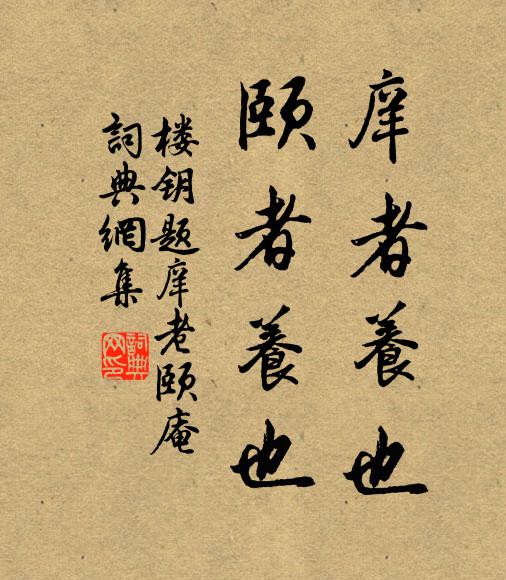 庠者養也
頤者養也
楼钥题庠老頤庵
詞典網集
詞典网印